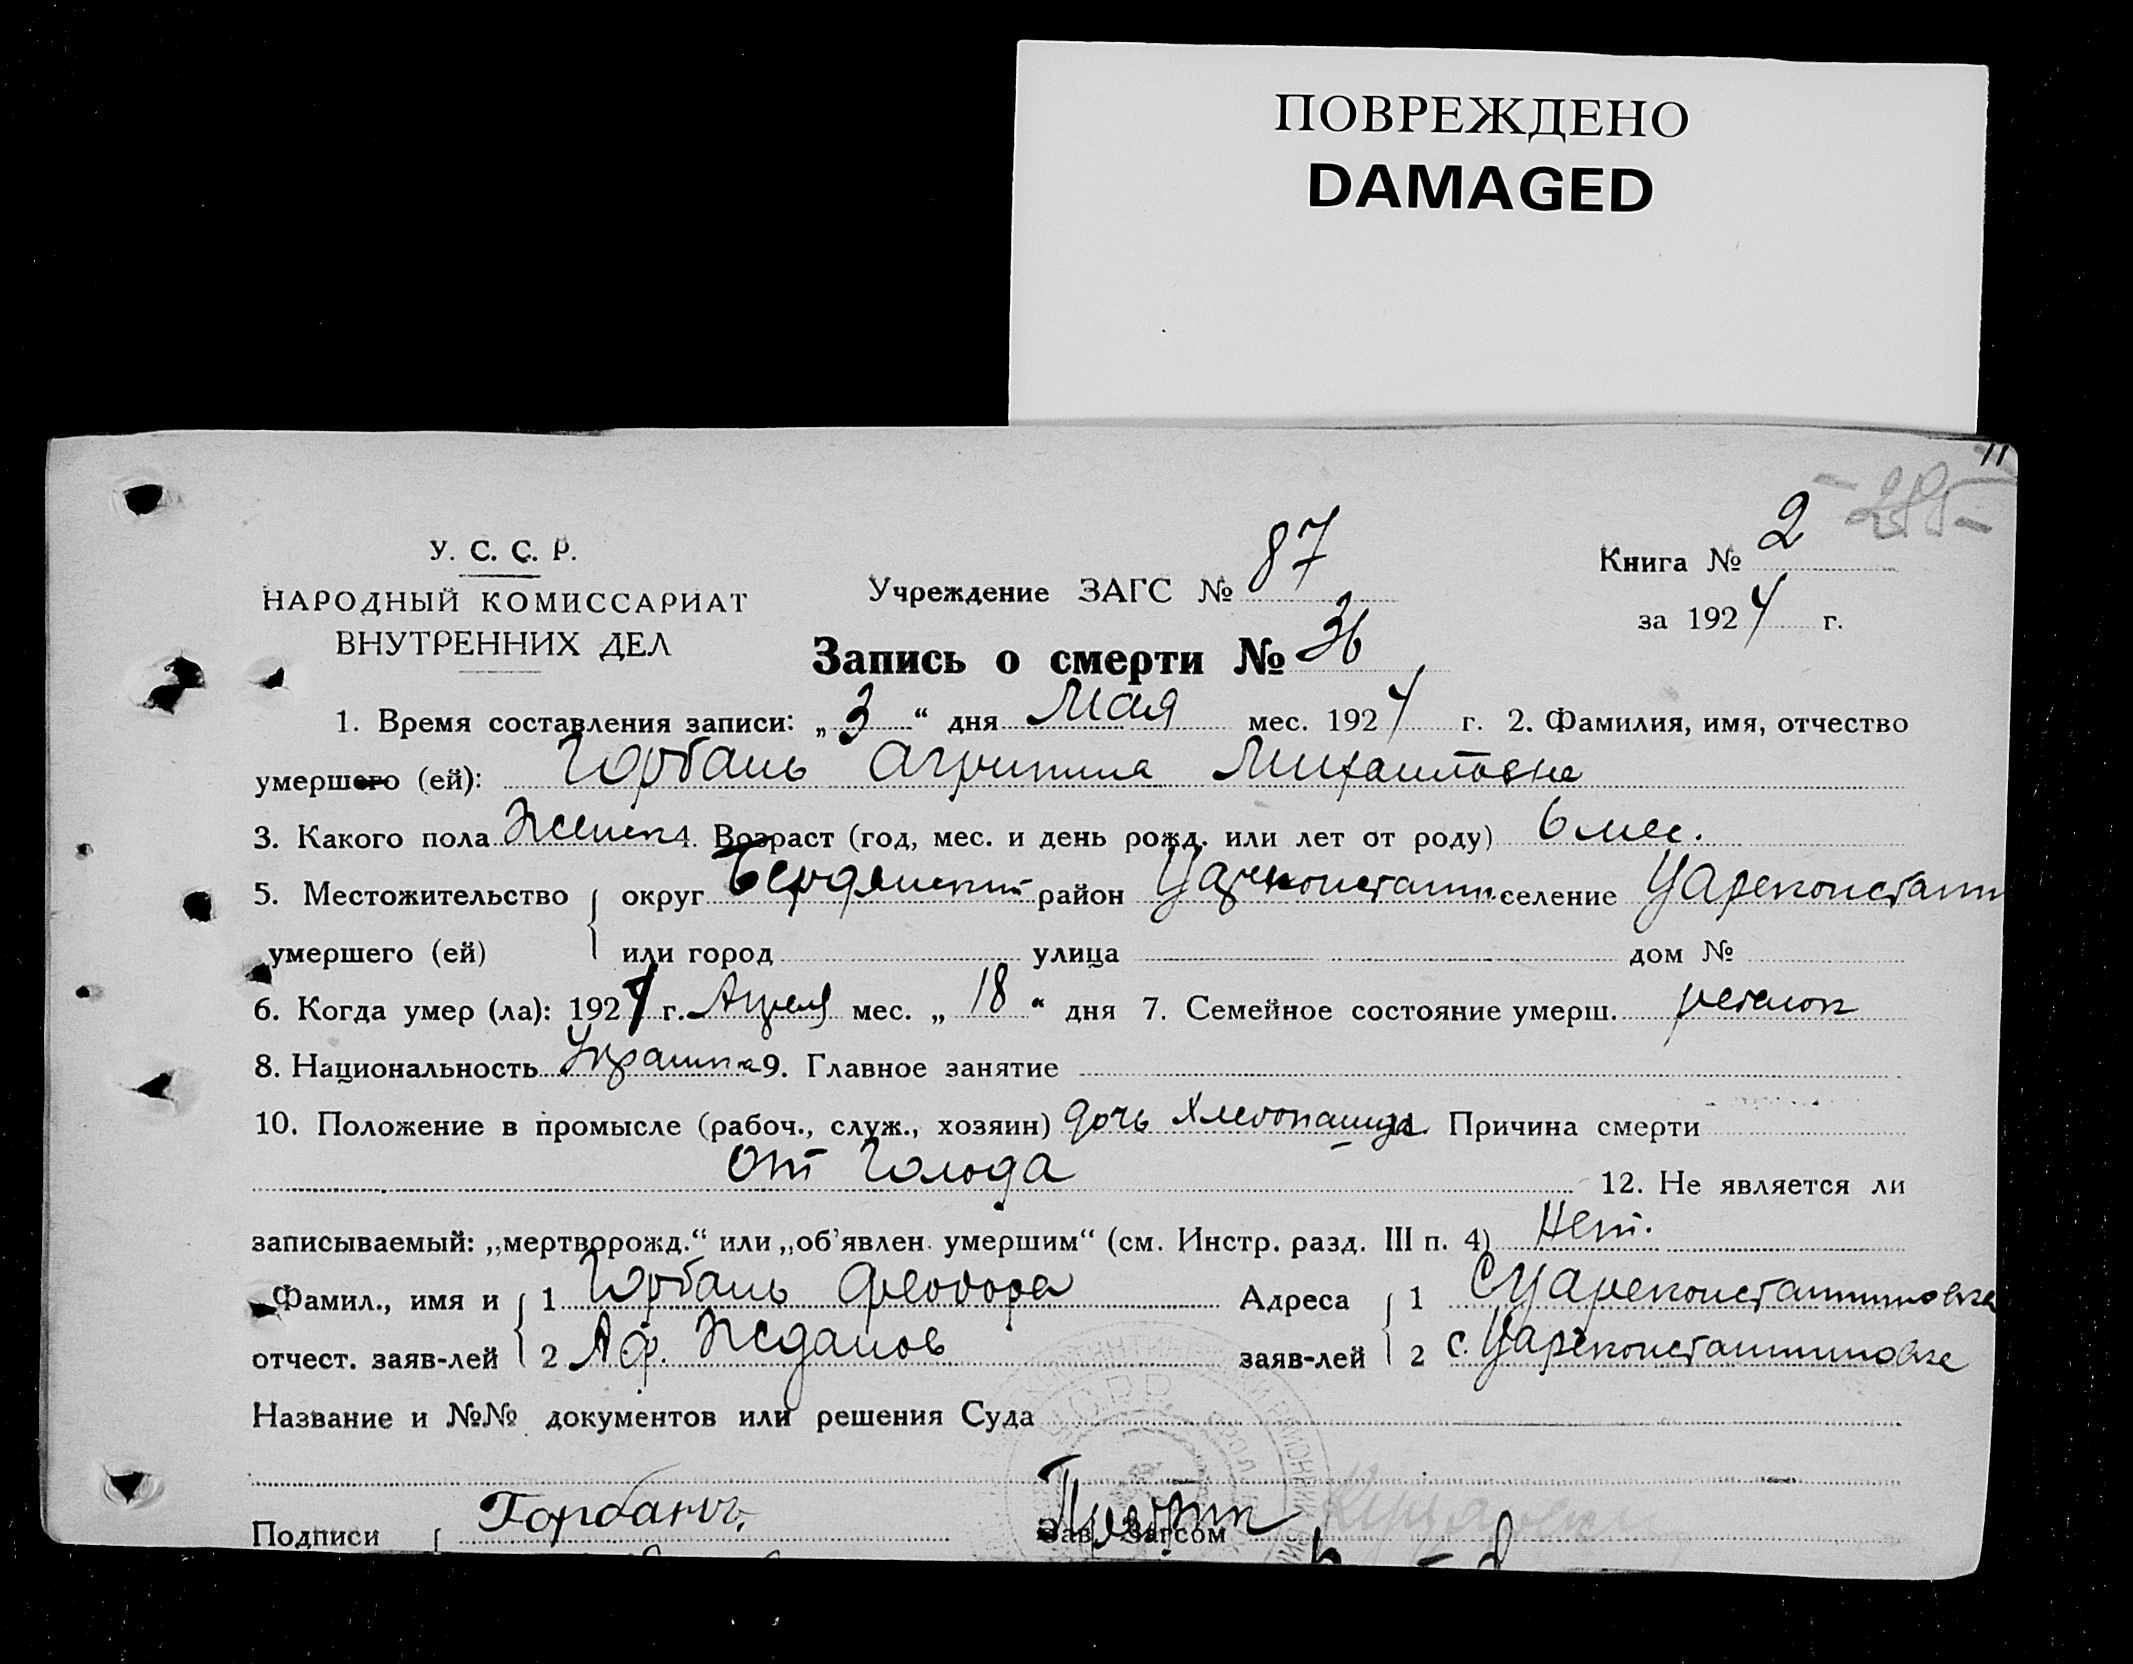 ПОВРЕЖДЕНО
DAMAGED
11
У. С. С. Р.
НАРОДНЫЙ КОМИССАРИАТ
ВНУТРЕННИХ ДЕЛ
Учреждение ЗАГС № 87
Книга № 2
за 1924 г.
Запись о смерти № 36
1. Время составления записи: „3“ дня Мая мес. 1924 г. 2. Фамилия, имя, отчество
умершего (ей): Горбань Агрипина Михайловна
3. Какого пола Женск 4. Возраст (год, мес. и день рожд. или лет от роду) 6 мес.
5. Местожительство округ Бердянский район Цареконстант. селение Цареконстант
умершего (ей) или город улица дом №
6. Когда умер (ла): 1924 г. Апреля мес. „18“ дня 7. Семейное состояние умерш.
8. Национальность Украинка 9. Главное занятие
10. Положение в промысле (рабоч., служ., хозяин) дочь хлебопашца. Причина смерти
от голода 12. Не является ли
записываемый: „мертворожд.“ или „об’явлен умершим“ (см. Инстр. разд. III п. 4) Нет.
Фамил., имя и 1 Горбань Феодора Адреса 1 С Цареконстантиновка
отчест. заяв-лей 2 Аф. Жданов заяв-лей 2 с. Цареконстантиновке
Название и №№ документов или решения Суда
Подписи Горбань Зав. Загсом